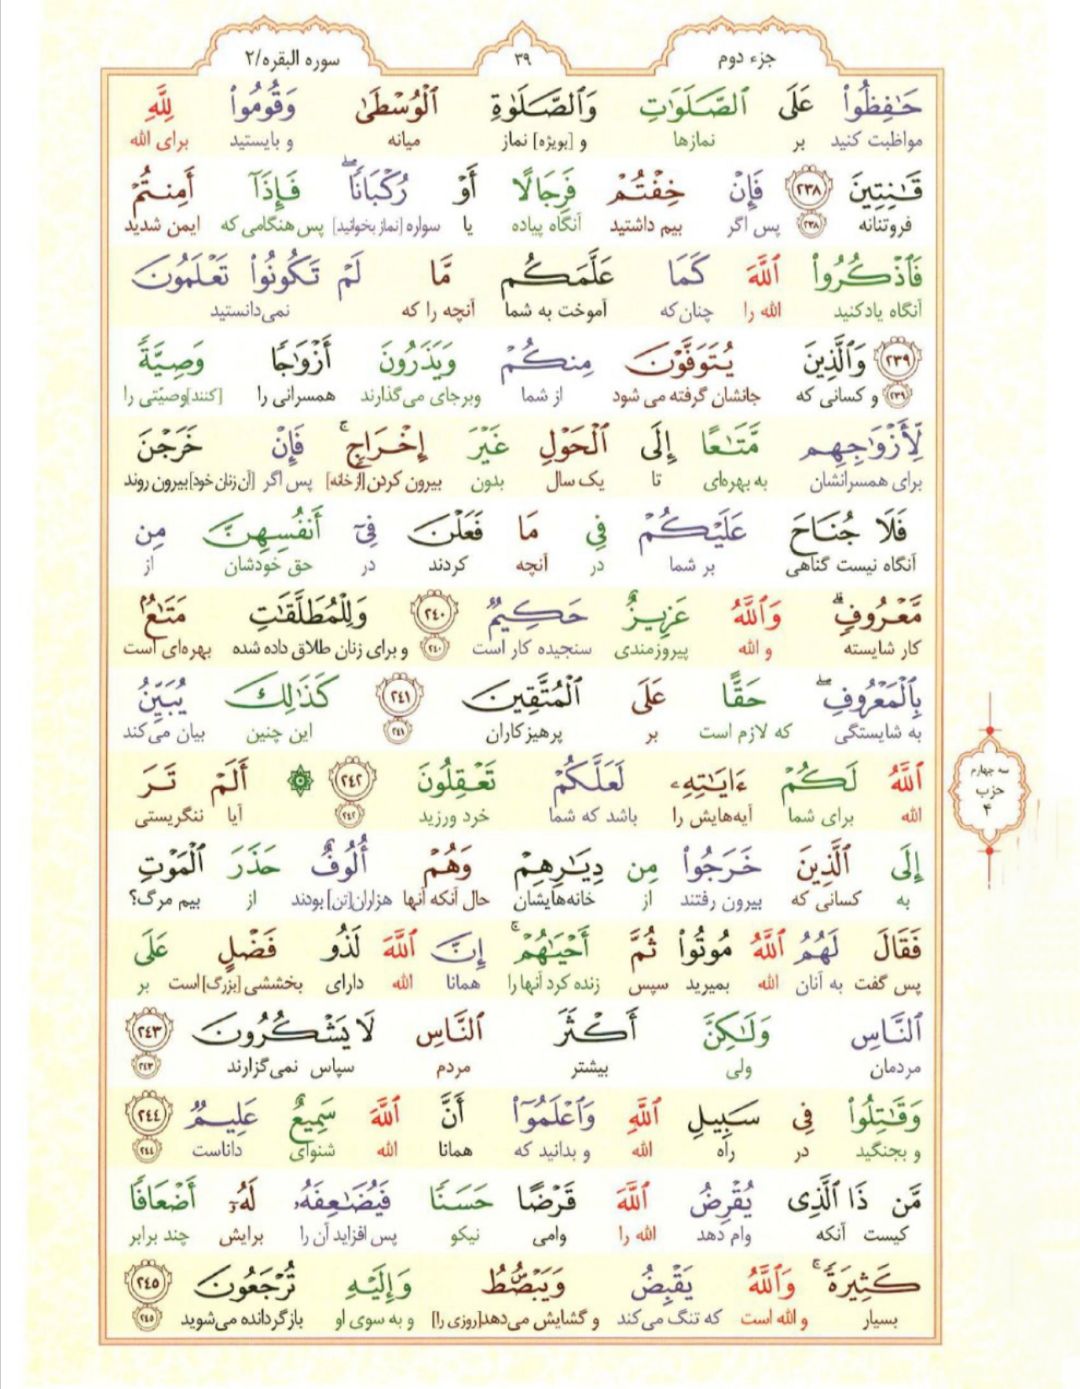 جزء دوم ۳۹ سوره البقره/۲
حَـٰفِظُوا۟ عَلَى ٱلصَّلَوَٰتِ وَٱلصَّلَوٰةِ ٱلْوُسْطَىٰ وَقُومُوا۟ لِلَّهِ
مواظبت کنید بر نمازها و [بویژه] نماز میانه و بایستید برای الله
قَـٰنِتِينَ ﴿٢٣٨﴾ فَإِنْ خِفْتُمْ فَرِجَالًا أَوْ رُكْبَانًا ۖ فَإِذَآ أَمِنتُمْ
فروتنانه ﴿۲۳۸﴾ پس اگر بیم داشتید آنگاه پیاده یا سواره [نماز بخوانید] پس هنگامی که ایمن شدید
فَٱذْكُرُوا۟ ٱللَّهَ كَمَا عَلَّمَكُم مَّا لَمْ تَكُونُوا۟ تَعْلَمُونَ
آنگاه یاد کنید الله را چنان که آموخت به شما آنچه را که نمی‌دانستید
﴿٢٣٩﴾ وَٱلَّذِينَ يُتَوَفَّوْنَ مِنكُمْ وَيَذَرُونَ أَزْوَٰجًا وَصِيَّةً
﴿۲۳۹﴾ و کسانی که جانشان گرفته می شود از شما و برجای می‌گذارند همسرانی را [کنند] وصیّتی را
لِّأَزْوَٰجِهِم مَّتَـٰعًا إِلَى ٱلْحَوْلِ غَيْرَ إِخْرَاجٍ ۚ فَإِنْ خَرَجْنَ
برای همسرانشان به بهره‌ای تا یک سال بدون بیرون کردن [از خانه] پس اگر [آن زنان خود] بیرون روند
فَلَا جُنَاحَ عَلَيْكُمْ فِى مَا فَعَلْنَ فِىٓ أَنفُسِهِنَّ مِن
آنگاه نیست گناهی بر شما در آنچه کردند در حق خودشان از
مَّعْرُوفٍ ۗ وَٱللَّهُ عَزِيزٌ حَكِيمٌ ﴿٢٤٠﴾ وَلِلْمُطَلَّقَـٰتِ مَتَـٰعٌۢ
کار شایسته و الله پیروزمندی سنجیده کار است ﴿۲۴۰﴾ و برای زنان طلاق داده شده بهره‌ای است
بِٱلْمَعْرُوفِ ۖ حَقًّا عَلَى ٱلْمُتَّقِينَ ﴿٢٤١﴾ كَذَٰلِكَ يُبَيِّنُ
به شایستگی که لازم است بر پرهیزکاران ﴿۲۴۱﴾ این چنین بیان می‌کند
ٱللَّهُ لَكُمْ ءَايَـٰتِهِۦ لَعَلَّكُمْ تَعْقِلُونَ ﴿٢٤٢﴾ ۞ أَلَمْ تَرَ
الله برای شما آیه‌هایش را باشد که شما خرد ورزید ﴿۲۴۲﴾ آیا ننگریستی
سه چهارم
حزب
۴
إِلَى ٱلَّذِينَ خَرَجُوا۟ مِن دِيَـٰرِهِمْ وَهُمْ أُلُوفٌ حَذَرَ ٱلْمَوْتِ
به کسانی که بیرون رفتند از خانه‌هایشان حال آنکه آنها هزاران [تن] بودند از بیم مرگ؟
فَقَالَ لَهُمُ ٱللَّهُ مُوتُوا۟ ثُمَّ أَحْيَـٰهُمْ ۚ إِنَّ ٱللَّهَ لَذُو فَضْلٍ عَلَى
پس گفت به آنان الله بمیرید سپس زنده کرد آنها را همانا الله دارای بخششی [بزرگ] است بر
ٱلنَّاسِ وَلَـٰكِنَّ أَكْثَرَ ٱلنَّاسِ لَا يَشْكُرُونَ ﴿٢٤٣﴾
مردمان ولی بیشتر مردم سپاس نمی‌گزارند ﴿۲۴۳﴾
وَقَـٰتِلُوا۟ فِى سَبِيلِ ٱللَّهِ وَٱعْلَمُوٓا۟ أَنَّ ٱللَّهَ سَمِيعٌ عَلِيمٌ ﴿٢٤٤﴾
و بجنگید در راه الله و بدانید که همانا الله شنوای داناست ﴿۲۴۴﴾
مَّن ذَا ٱلَّذِى يُقْرِضُ ٱللَّهَ قَرْضًا حَسَنًا فَيُضَـٰعِفَهُۥ لَهُۥٓ أَضْعَافًا
کیست آنکه وام دهد الله را وامی نیکو پس افزاید آن را برایش چند برابر
كَثِيرَةً ۚ وَٱللَّهُ يَقْبِضُ وَيَبْصُۜطُ وَإِلَيْهِ تُرْجَعُونَ ﴿٢٤٥﴾
بسیار و الله است که تنگ می‌کند و گشایش می‌دهد [روزی را] و به سوی او بازگردانده می‌شوید ﴿۲۴۵﴾